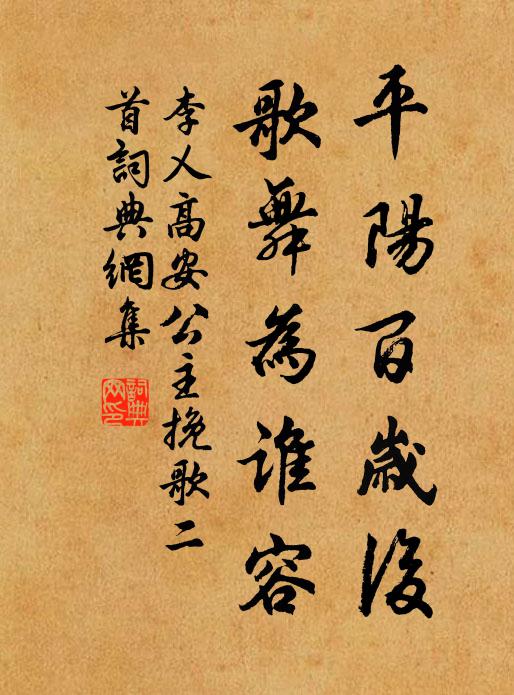 平陽百歲後
歌舞為誰容
李乂高安公主挽歌二
首詞典網集
詞典網印